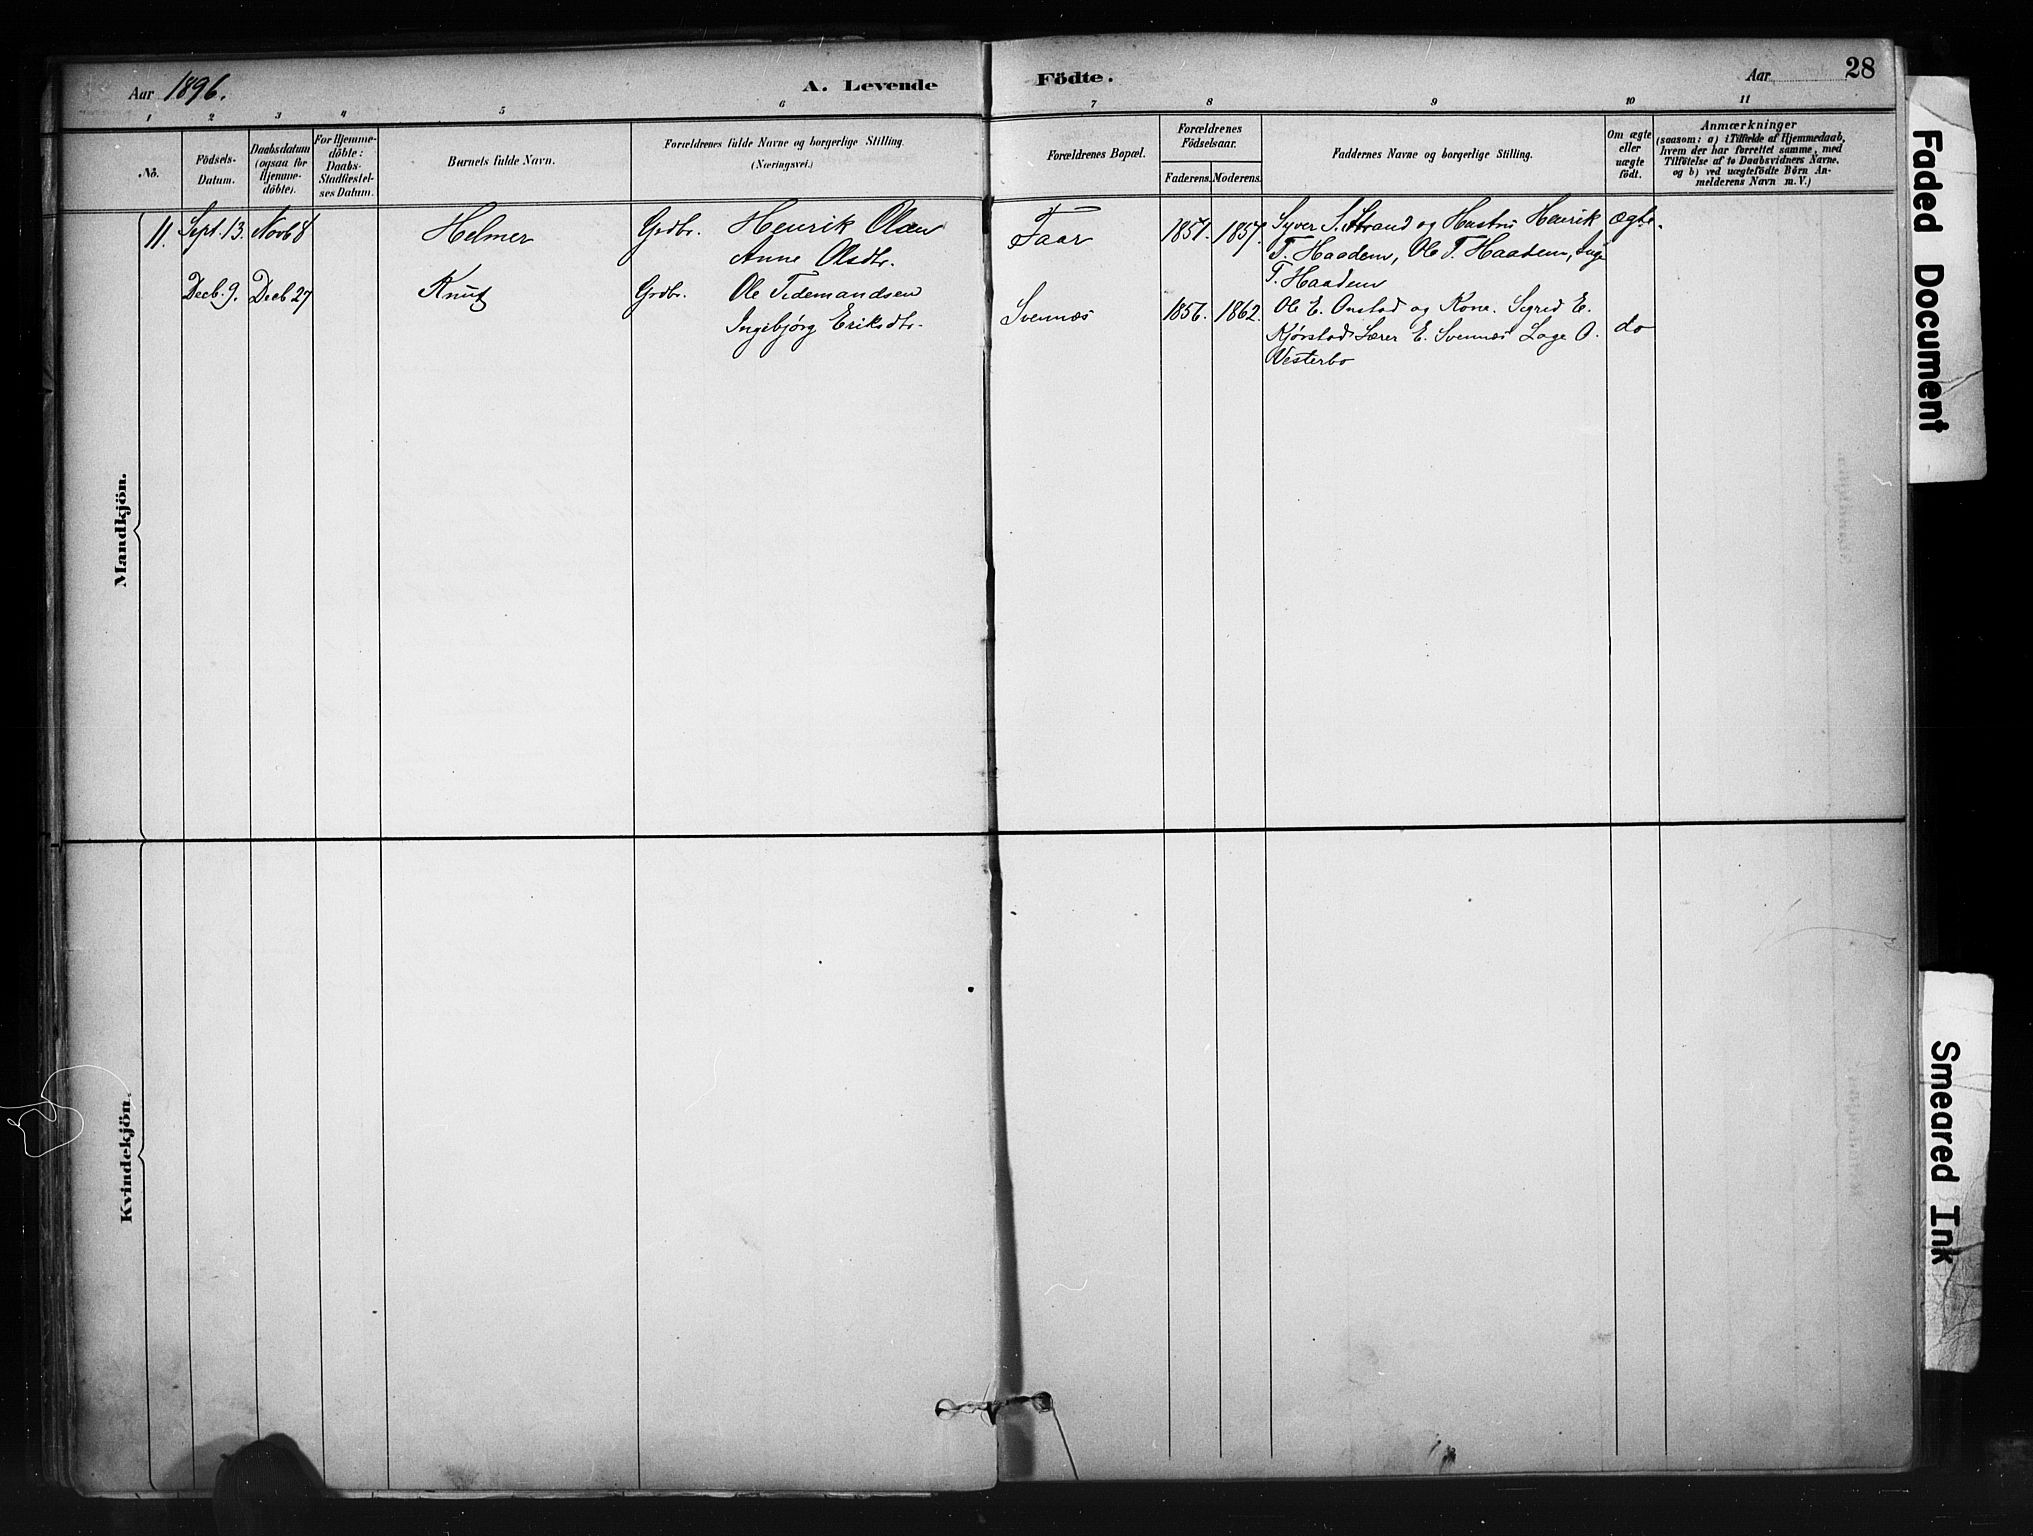 Aar 1896.
A. Levende Födte.
Aar
28
1 2 3 4 5 6 7 8 9 10 11
No.
Födsels-
Datum.
Daabsdatum
(ogsaa för
Hjemme-
döbte).
For Hjemme-
döbte:
Daabs-
Stadfæstel-
ses Datum.
Barnets fulde Navn.
Forældrenes fulde Navne og borgerlige Stilling.
(Næringsvei.)
Forældrenes Bopæl.
Forældrenes
Födselsaar.
Faderens.
Moderens.
Faddernes Navne og borgerlige Stilling.
Om ægte
eller
uægte
födt.
Anmærkninger
(saasom: a) i Tilfælde af Hjemmedaab,
hvem der har forrettet samme, med
Tilföielse af to Daabsvidners Navne,
og b) ved uægtefödte Börn An-
melderens Navn m. V.)
Mandkjön.
11. Sept. 13. Novb 8 Helmer Grdbr. Henrik Olsen
Anne Olsdtr.
Faar 1851. 1857. Syver S. Strand og Hustru Henrik
T. Haadem, Ole T. Haadem, Inge
T. Haadem
ægte.
Decb. 9. Decb 27 Knut Grdbr. Ole Tidemandsen
Ingebjørg Eriksdtr.
Svennæs 1856. 1862. Ole E. Onstad og Kone. Sigrid E.
Kjørstad Lærer E. Svennæs Lage O.
Vesterbo
do
Kvindekjön.
Faded Document
Smeared Ink